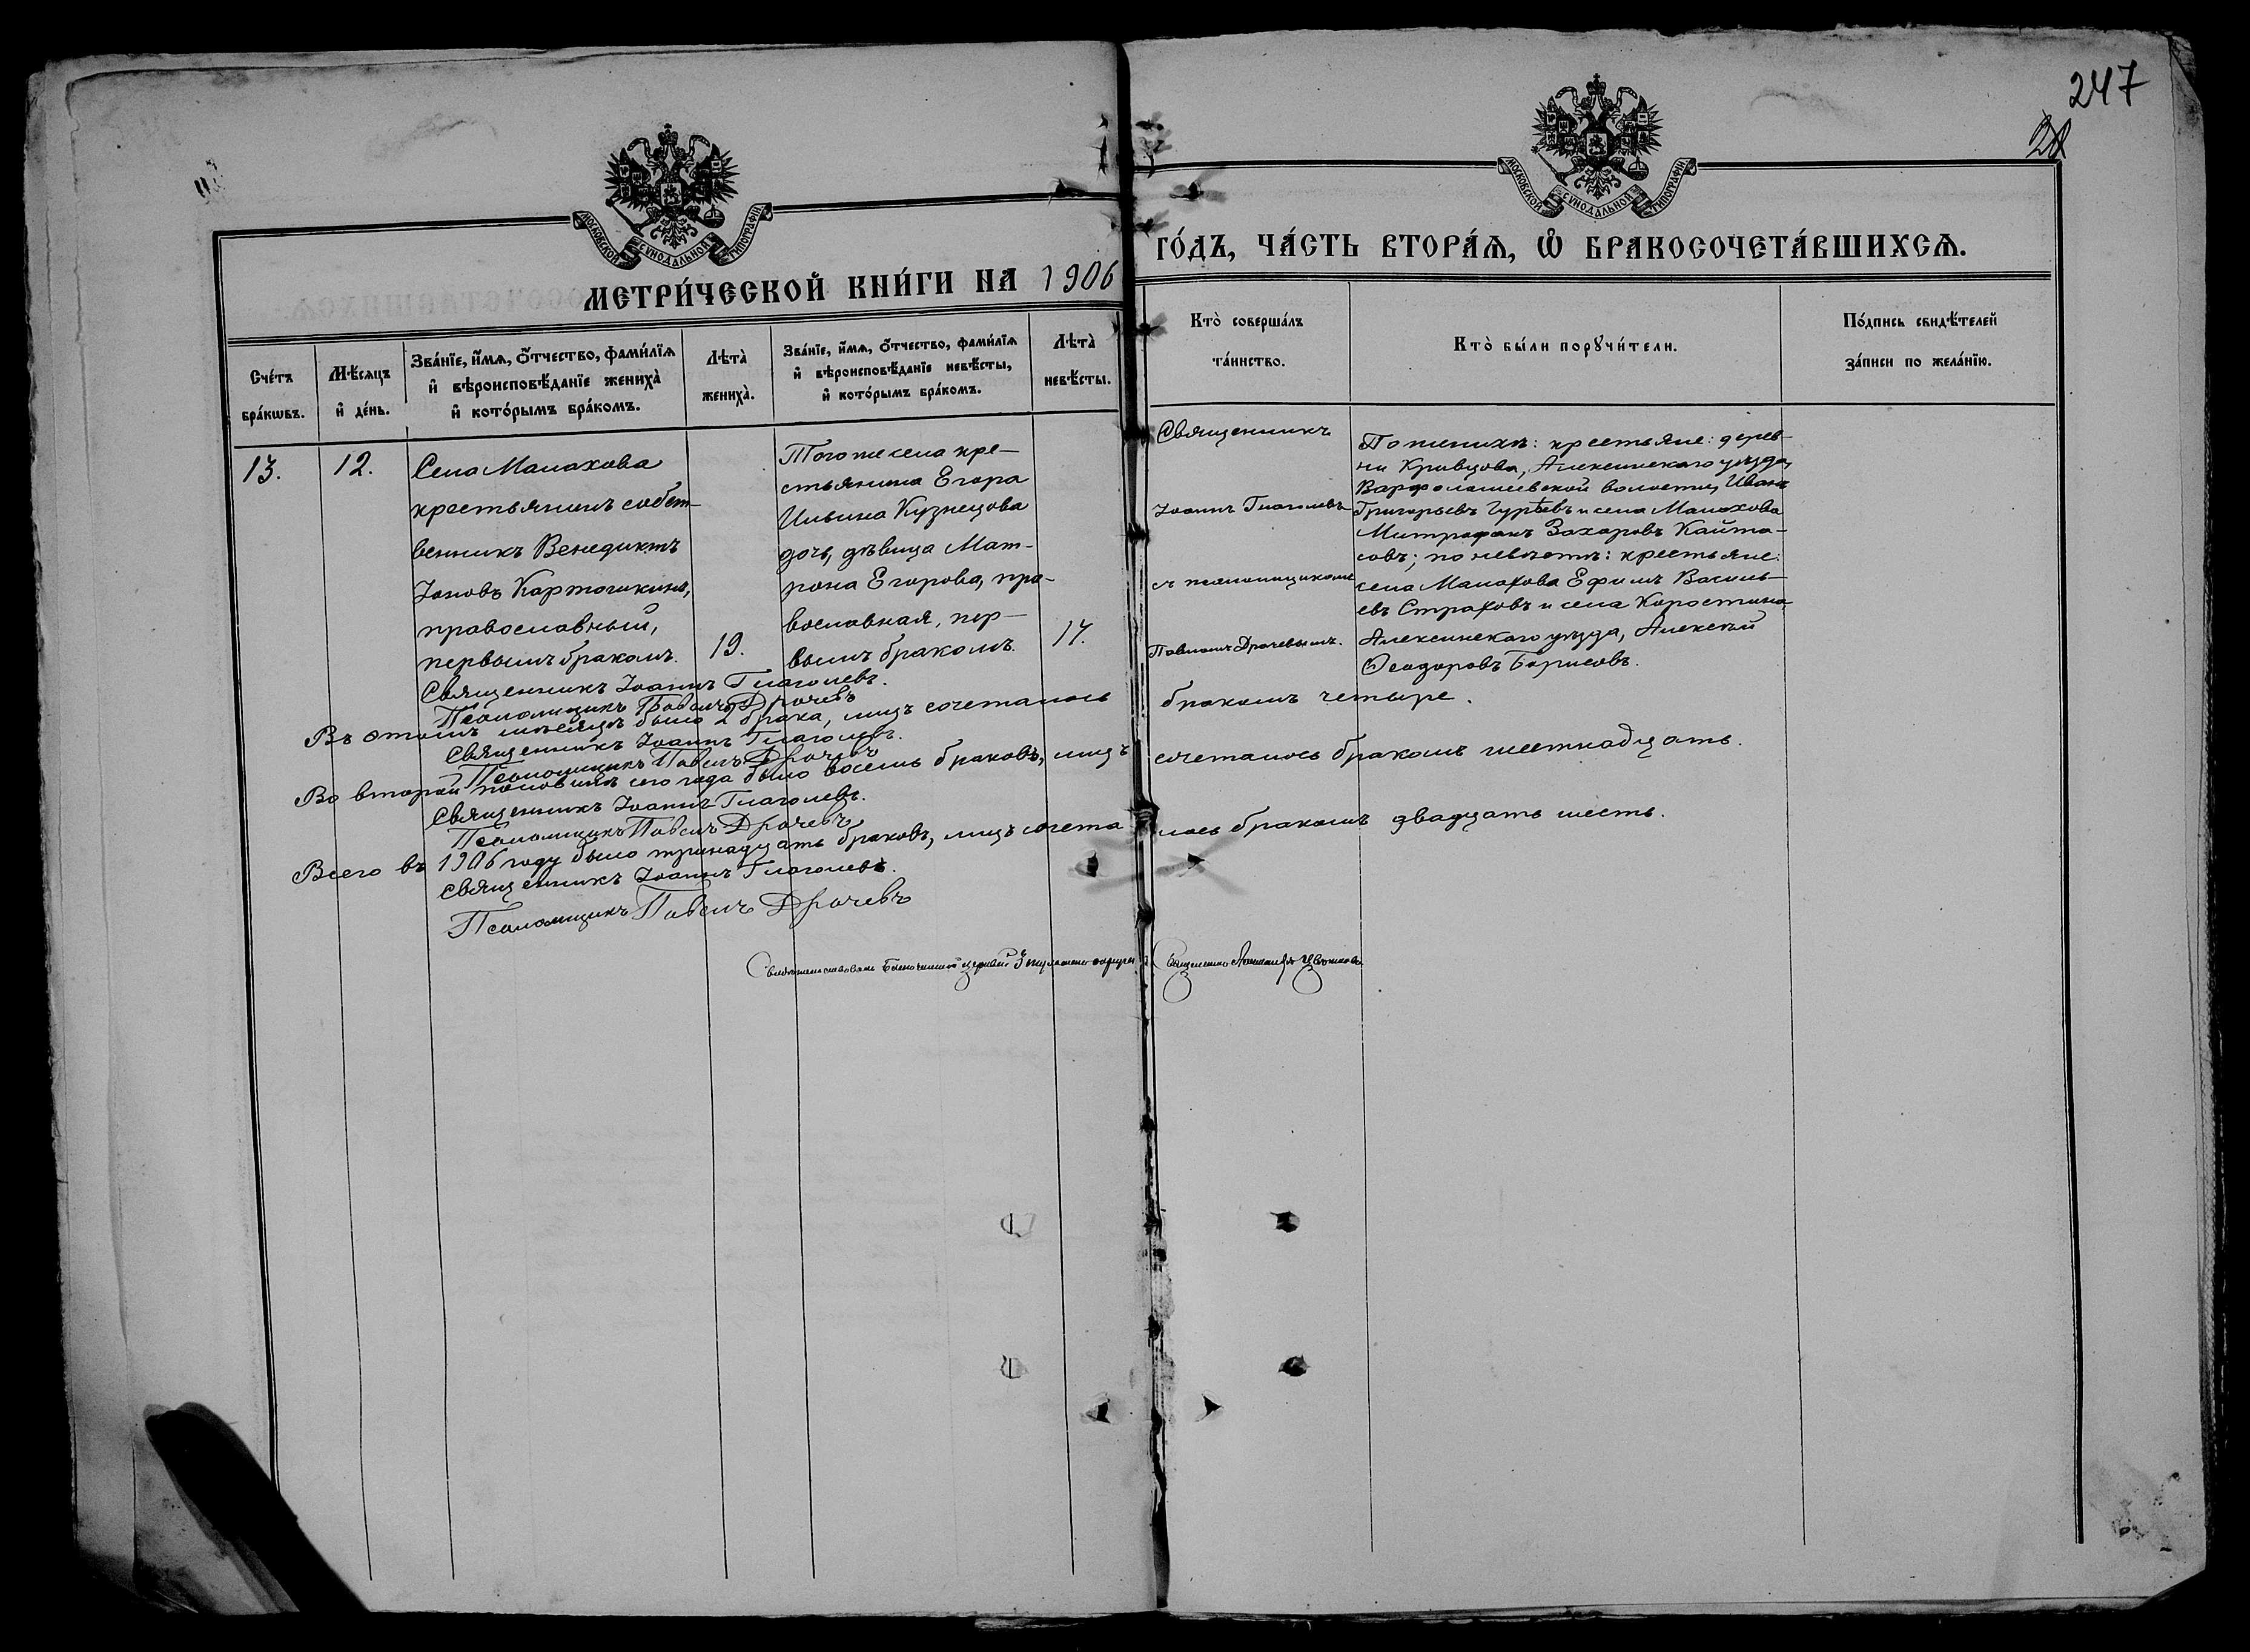 247
МОСКОВСКОЙ СѴНОДАЛЬНОЙ ТИПОГРАФІИ
МОСКОВСКОЙ СѴНОДАЛЬНОЙ ТИПОГРАФІИ
МЕТРИ́ЧЕСКОЙ КНИ́ГИ НА 1906
ГО́ДЪ, ЧА́СТЬ ВТОРА́Ѧ, Ѽ БРАКОСОЧЕТА́ВШИХСѦ.
Сче́тъ
бра́кѡвъ.
Мѣ́сяцъ
и҆ де́нь.
Зва́нїе, и҆́мѧ, ѻ҆́тчество, фами́лїѧ
и҆ вѣроисповѣ́данїе жениха̀
и҆ кото́рымъ бра́комъ.
Лѣта̀
жениха̀.
Зва́нїе, и҆́мѧ, ѻ҆́тчество, фами́лїѧ
и҆ вѣроисповѣ́данїе невѣ́сты,
и҆ кото́рымъ бра́комъ.
Лѣта̀
невѣ́сты.
Кто̀ соверша́лъ
та́инство.
Кто̀ бы́ли порꙋчи́тели.
По́дпись свидѣ́телей
за́писи по жела́нїю.
13.
12.
Села Малахова
крестьянинъ собст-
венникъ Венедиктъ
Іоновъ Картошкинъ,
православный,
первымъ бракомъ.
19.
Того же села кре-
стьянина Егора
Ильина Кузнецова
дочь, дѣвица Мат-
рона Егорова, пра-
вославная, пер-
вымъ бракомъ.
17.
Священникъ
Іоаннъ Глаголевъ
съ псаломщикомъ
Павломъ Драчевымъ.
По женихѣ: крестьяне: дерев-
ни Кривцова, Алексинскаго уѣзда,
Варфоломеевской волости, Иванъ
Григорьевъ Гурѣевъ и села Малахова
Митрофанъ Захаровъ Кайта-
совъ; по невѣстѣ: крестьяне:
села Малахова Ефимъ Василь-
евъ Страховъ и села Коростина
Алексинскаго уѣзда, Алексѣй
Ѳеодоровъ Борисовъ.
Священникъ Іоаннъ Глаголевъ.
Псаломщикъ Павелъ Драчевъ
Въ этомъ мѣсяцѣ было 2 брака, лицъ сочеталось бракомъ четыре.
Священникъ Іоаннъ Глаголевъ.
Псаломщикъ Павелъ Драчевъ
Во второй половинѣ сего года было восемь браковъ, лицъ сочеталось бракомъ шестнадцать.
Священникъ Іоаннъ Глаголевъ.
Псаломщикъ Павелъ Драчевъ
Всего въ 1906 году было тринадцать браковъ, лицъ сочеталось бракомъ двадцать шесть.
Священникъ Іоаннъ Глаголевъ.
Псаломщикъ Павелъ Драчевъ
Благочинный церквей 3 округа Священникъ